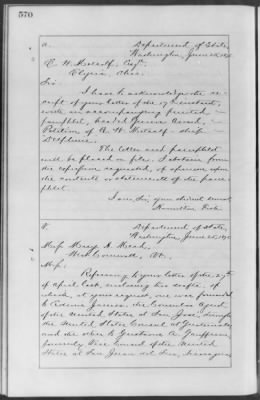 570
Department of State,
Washington, June 25, 187
E. W. Metcalf, Esq.
Elyria, Ohio.
Sir:
I have to acknowledge the re-
ceipt of your letter of the 17 instant,
with an accompanying printed
pamphlet, headed
Petition of E. W. Metcalf - ship
Delphine.
The letter and pamphlet
will be placed on file. I abstain from
the expression requested, of opinion upon
the contents or statements of the pam-
phlet.
I am, Sir, your obedient servant
Hamilton Fish
Department of State,
Washington, June 25, 187
Miss Mary A. Mead,
West Cornwall, Vt.
Miss:
Referring to your letter of the 27th
of April last, enclosing two drafts, of
which, at your request, one was forwarded
to the Consular Agent
of the United States at San José, through
the United States Consul at Guatemala,
and the other to Gustavus A.
formerly Vice Consul of the United
States at San Juan del Sur, Nicaragua,